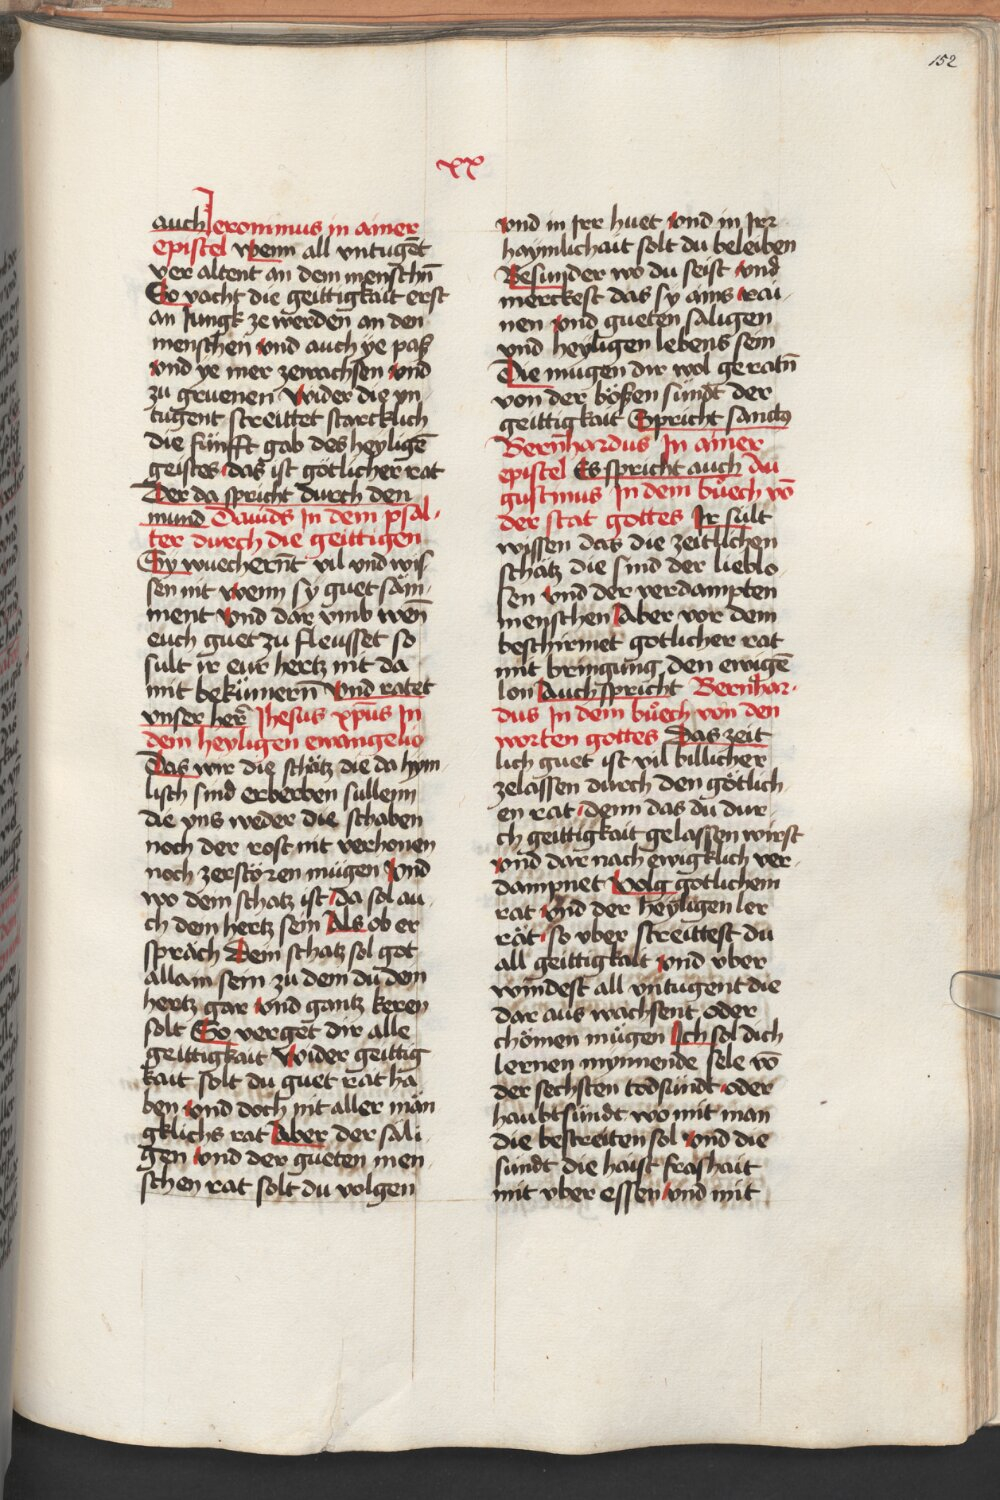 152
xx
auch Jeronimus in ainer
epistel wenn all vntugēt
ver altent an dem menschn̄
So vacht die geittigkait erst
an Jungk ze werden an den
menschen vnd auch ye paß
vnd ye mer zewachsen vnd
zu gruenen Wider die vn
tugent streittet starcklich
die fünfft gab des heyligē
geistes das ist götlicher rat
Der da spricht durch den
mund Dauids In dem psal
ter durch die geittigen
Sy wuechern̄t vil vnd wis
sen nit wenn sy guet sām
ment Vnd dar vmb wen̄
euch guet zu fleusset so
sult ir eur hertz nit da
mit bekümern̄ Vnd ratet
vnser her̄ Jhesus xp̄us In
dem heyligen ewangelio
Das wir die schätz die da hym
lisch sind erberben sullenn
die vns weder die schaben
noch der rost nit verhonen
noch zerstören mügen Vnd
wo dem schatz ist da sol au
ch dem hertz sein Als ob er
spräch Dein schatz sol got
allain sein zu dem du dem
hertz gar vnd gantz keren
solt So verget dir alle
geittigkait Wider geittig
kait solt du guet rat ha
ben vnd doch nit aller män
gklichs rat Aber der säli
gen vnd der gueten men
schen rat solt du volgen
vnd in Irr huet vnd in Irr
haymlichait solt du beleiben
Besunder wo du seist vnd
merckest das sy ains rai
nen vnd gueten säligen
vnd heyligen lebens sein
Die mügen dir wol geratn̄
von der bößen sündt der
geittigkait Spricht sanctus
Bern̄hardus In ainer
epistel Es spricht auch Au
gustinus In dem bůech vō
der stat gottes Ir sült
wissen das die zeitlichen
schätz die sind der lieblo
sen vnd der verdampten
menschen Aber vor dem
beschirmet gotlicher rat
mit bringūng den ewigē
lon Auch spricht Bern̄har
dus In dem bůech von den
worten gottes Das zeit
lich guet ist vil billicher
zelassen durch den götlich
en rat denn das du dur
ch geittigkait gelassen wirst
vnd dar nach ewigklich ver
dampnet Volg gotlichem
rat vnd der heyligen ler
rät so vber streittest du
all geittigkait vnd vber
windest all vntugent die
dar aus wachsent oder
chömen mügen Ich sol dich
lernen mynnende sele vō
der sechsten todsündt oder
haubtsündt wo mit man
die bestreiten sol vnd die
sundt die haist frashait
mit vber essen vnd mit